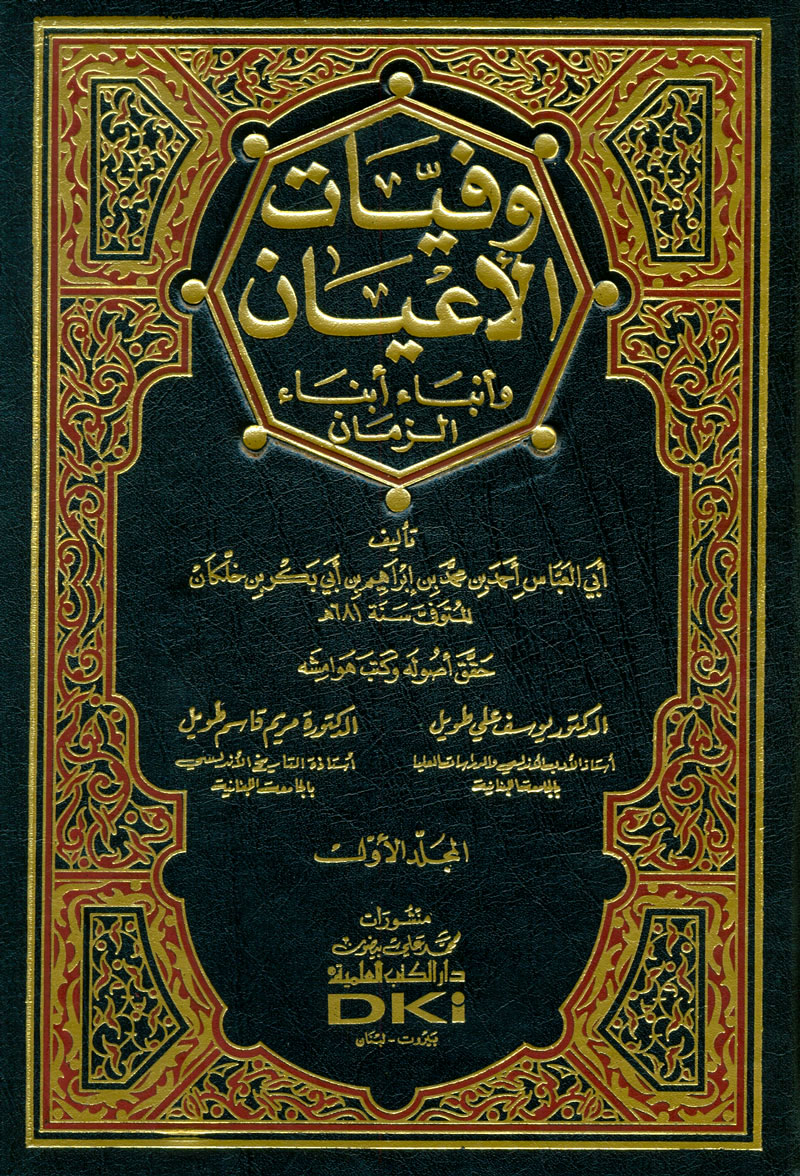 وفيّات
الأعيان
وأنباء أبناء
الزمان
تأليف
أبي العبّاس أحمد بن محمّد بن إبراهيم بن أبي بكر بن خلّكان
المتوفى سنة ٦٨١هـ
حقّق أصوله وكتب هوامشه
الدكتور يوسف علي طويل
أستاذ الأدب الأندلسي والدراسات العليا
بالجامعة اللبنانية
الدكتورة مريم قاسم طويل
أستاذة التاريخ الأندلسي
بالجامعة اللبنانية
المجلّد الأوّل
منشورات
محمد علي بيضون
دار الكتب العلمية
DKi
بيروت - لبنان